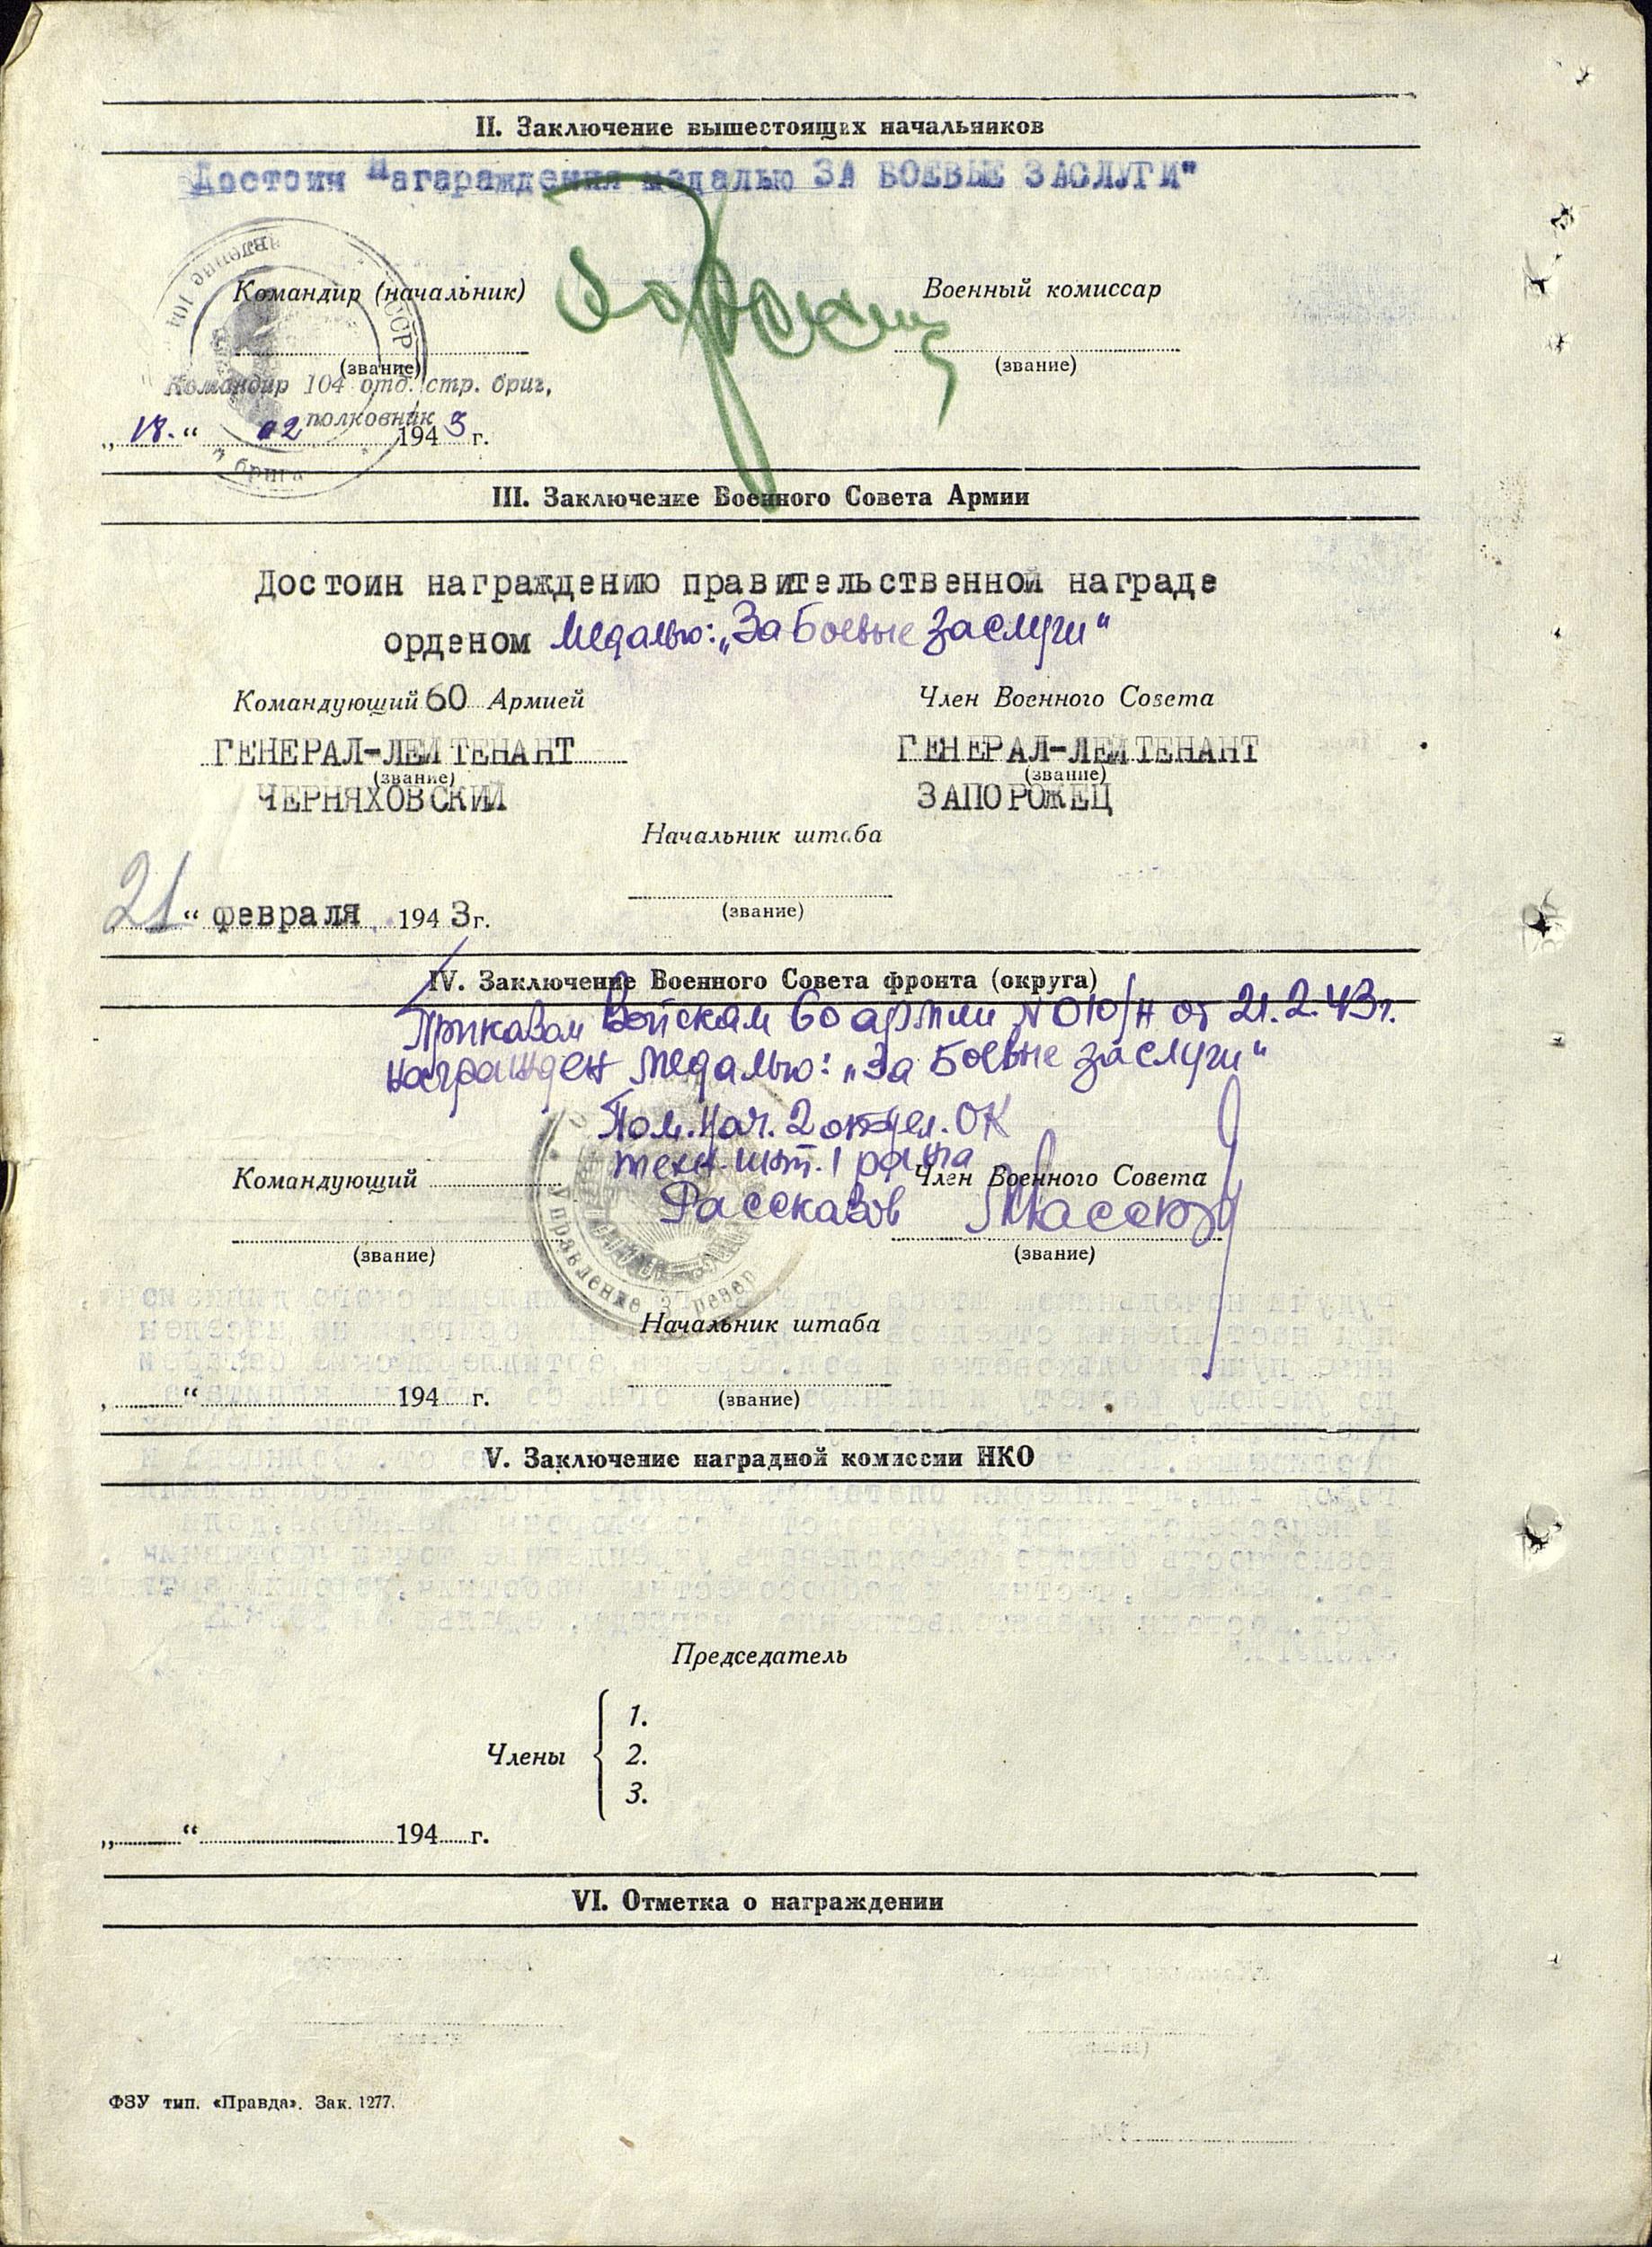 II. Заключение вышестоящих начальников
Достоин нагараждения медалью ЗА БОЕВЫЕ ЗАСЛУГИ"
Командир (начальник)
Военный комиссар
(звание)
(звание)
Командир 104 отд. стр. бриг,
полковник
„18.“ 02 1943 г.
III. Заключение Военного Совета Армии
Достоин награждению правительственной награде
орденом Медалью: „За Боевые заслуги“
Командующий 60 Армией
Член Военного Совета
ГЕНЕРАЛ-ЛЕЙТЕНАНТ
ГЕНЕРАЛ-ЛЕЙТЕНАНТ
(звание)
(звание)
ЧЕРНЯХОВСКИЙ
ЗАПОРОЖЕЦ
Начальник штаба
21 “ февраля 1943 г.
(звание)
IV. Заключение Военного Совета фронта (округа)
Приказом Войскам 60 армии N 010/н от 21.2.43г.
награжден медалью: „За Боевые заслуги“
Пом. Нач. 2 отдел. ОК
техн. инт. 1 ранга
Командующий
Член Военного Совета
Рассказов
(звание)
(звание)
Управление 3 резер
Начальник штаба
“ 194 г.
(звание)
V. Заключение наградной комиссии НКО
Председатель
Члены
1.
2.
3.
„ “ 194 г.
VI. Отметка о награждении
ФЗУ тип. «Правда». Зак. 1277.